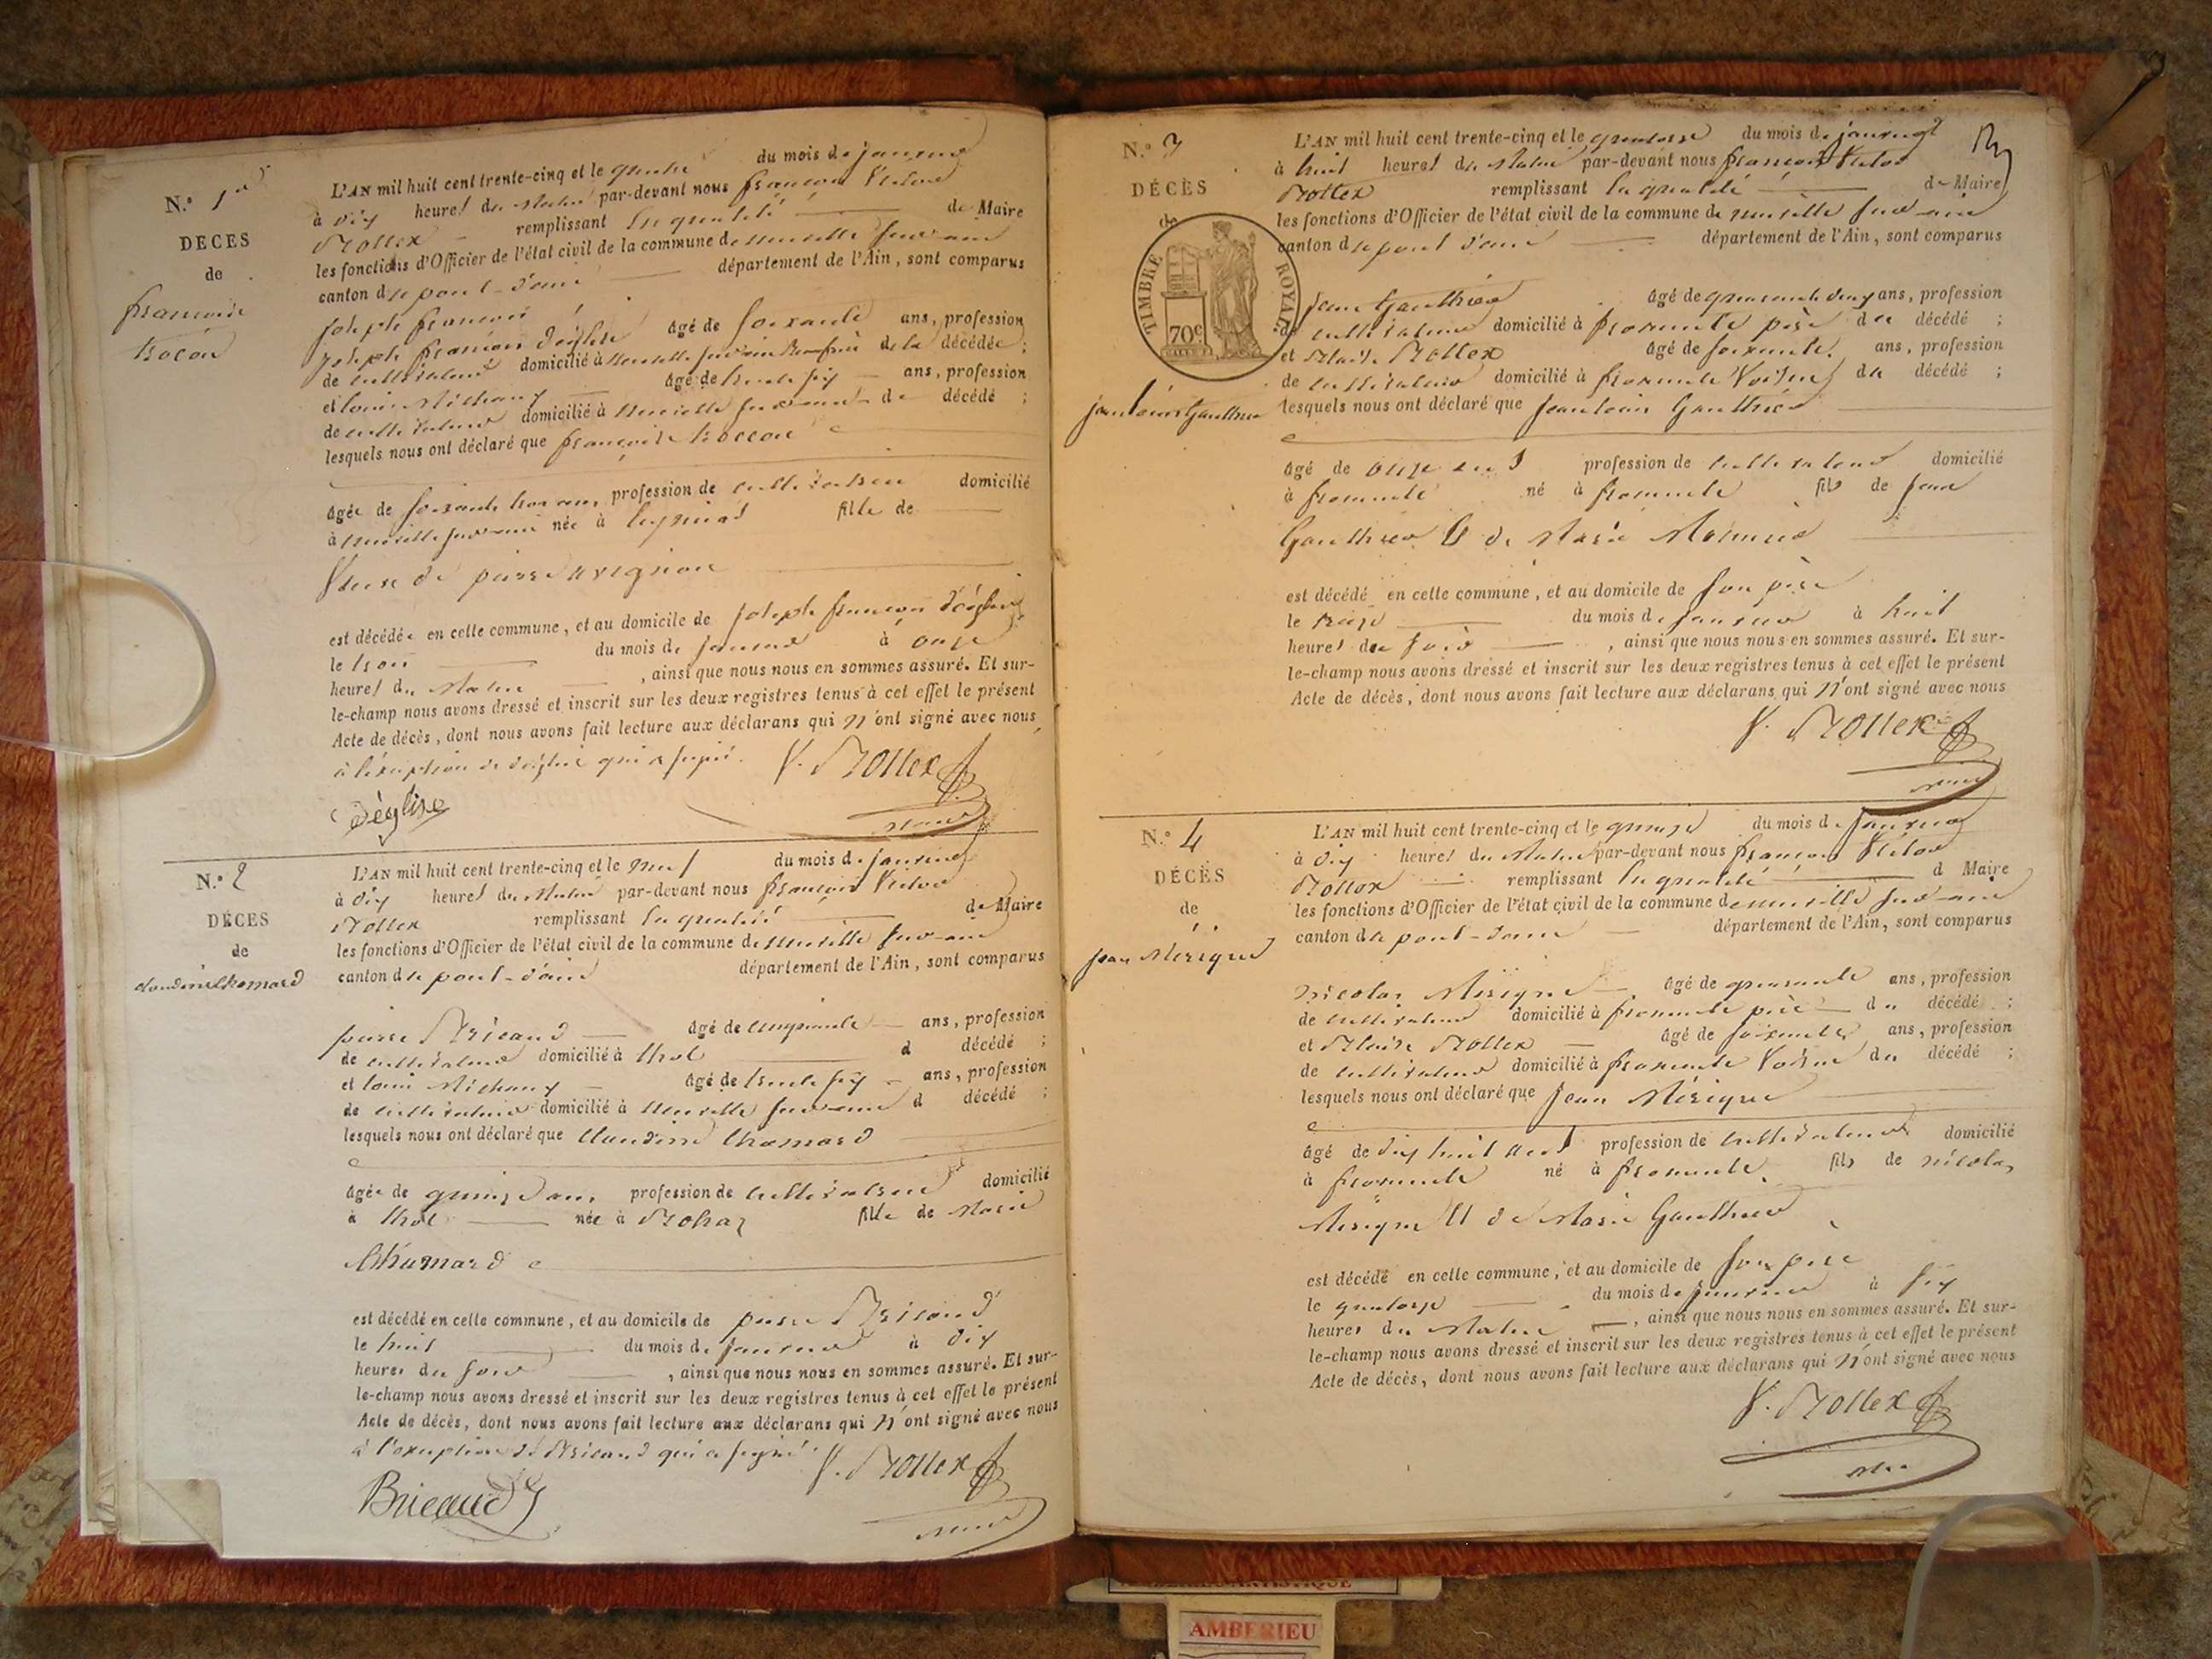 N.° 1er
DÉCÈS
de
françoise
trocon
L'AN mil huit cent trente-cinq et le quatre du mois de janvier
à dix heures du matin par-devant nous françois Victor
Bollex remplissant la qualité de Maire
les fonctions d'Officier de l'état civil de la commune de neuville sur-ain
canton de pont-d'ain département de l'Ain, sont comparus
joseph françois
joseph françois déglise âgé de soixante ans, profession
de cultivateur domicilié à neuville sur ain de la décédée ;
et louis Michaux âgé de trente six ans, profession
de cultivateur domicilié à neuville sur-ain de décédé ;
lesquels nous ont déclaré que françoise trocon
âgée de soixante trois ans, profession de cultivatrice domicilié
à neuville sur-ain née à fille de
Veuve de pierre avignon
est décédée en cette commune, et au domicile de joseph françois déglise
le trois du mois de janvier à onze
heures du matin , ainsi que nous nous en sommes assuré. Et sur-
le-champ nous avons dressé et inscrit sur les deux registres tenus à cet effet le présent
Acte de décès, dont nous avons fait lecture aux déclarans qui n'ont signé avec nous
à l'exception de déglise qui a signé. V. Bollex
déglise maire
N.° 2
DÉCÈS
de
claudine chomard
L'AN mil huit cent trente-cinq et le neuf du mois de janvier
à dix heures du matin par-devant nous françois Victor
Bollex remplissant la qualité de Maire
les fonctions d'Officier de l'état civil de la commune de neuville sur-ain
canton de pont-d'ain département de l'Ain, sont comparus
pierre Bricaud âgé de cinquante ans, profession
de cultivateur domicilié à thol d décédé ;
et louis Michaux âgé de trente six ans, profession
de cultivateur domicilié à neuville sur-ain d décédé ;
lesquels nous ont déclaré que claudine chomard
âgée de quinze ans, profession de cultivatrice domicilié
à thol née à Bohaz fille de Marie
Chumard
est décédé en cette commune, et au domicile de pierre Bricaud
le huit du mois de janvier à dix
heures du soir , ainsi que nous nous en sommes assuré. Et sur-
le-champ nous avons dressé et inscrit sur les deux registres tenus à cet effet le présent
Acte de décès, dont nous avons fait lecture aux déclarans qui n'ont signé avec nous
à l'exception de Bricaud qui a signé. V. Bollex
Bricaud maire
N.° 3
DÉCÈS
de
TIMBRE ROYAL
70c
jean louis Gauthier
L'AN mil huit cent trente-cinq et le quatorze du mois de janvier
à huit heures du matin par-devant nous françois Victor
Bollex remplissant la qualité de Maire
les fonctions d'Officier de l'état civil de la commune de neuville sur-ain
canton de pont d'ain département de l'Ain, sont comparus
jean Gauthier âgé de quarante deux ans, profession
de cultivateur domicilié à fromente père du décédé ;
et Blaise Bollex âgé de soixante ans, profession
de cultivateur domicilié à fromente Voisin du décédé ;
lesquels nous ont déclaré que jean louis Gauthier
âgé de onze ans profession de cultivateur domicilié
à fromente né à fromente fils de jean
Gauthier & de Marie
est décédé en cette commune, et au domicile de son père
le treize du mois de janvier à huit
heures du soir , ainsi que nous nous en sommes assuré. Et sur-
le-champ nous avons dressé et inscrit sur les deux registres tenus à cet effet le présent
Acte de décès, dont nous avons fait lecture aux déclarans qui n'ont signé avec nous
V. Bollex
maire
N.° 4
DÉCÈS
de
jean Mérigne
L'AN mil huit cent trente-cinq et le quinze du mois de janvier
à dix heures du matin par-devant nous françois Victor
Bollex remplissant la qualité d Maire
les fonctions d'Officier de l'état civil de la commune de neuville sur-ain
canton de pont-d'ain département de l'Ain, sont comparus
nicolas Mérigne âgé de quarante ans, profession
de cultivateur domicilié à fromente père du décédé ;
et Blaise Bollex âgé de soixante ans, profession
de cultivateur domicilié à fromente Voisin du décédé ;
lesquels nous ont déclaré que jean Mérigne
âgé de dix huit ans profession de cultivateur domicilié
à fromente né à fromente fils de nicolas
Mérigne & de Marie Gauthier
est décédé en cette commune, et au domicile de son père
le quatorze du mois de janvier à six
heures du matin , ainsi que nous nous en sommes assuré. Et sur-
le-champ nous avons dressé et inscrit sur les deux registres tenus à cet effet le présent
Acte de décès, dont nous avons fait lecture aux déclarans qui n'ont signé avec nous
V. Bollex
AMBERIEU